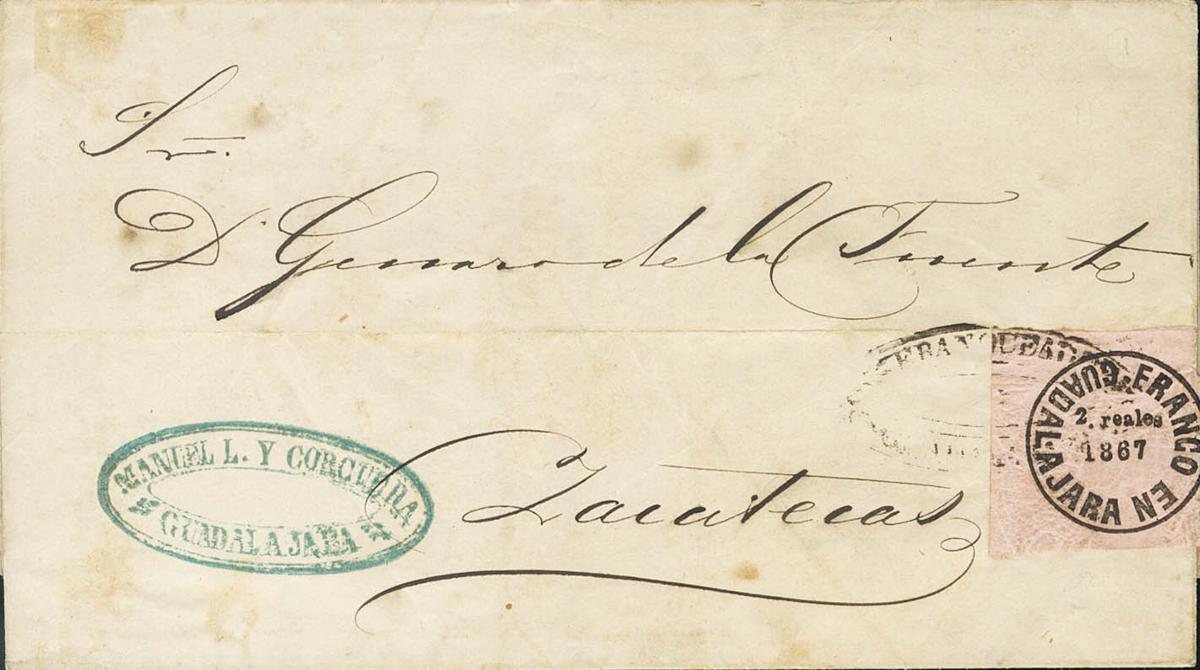 Sr.
D. Genaro de la Fuente
FRANQUEADO
FRANCO EN GUADALAJARA
2. reales
1867
MANUEL L. Y CORCUERA
GUADALAJARA
Zacatecas